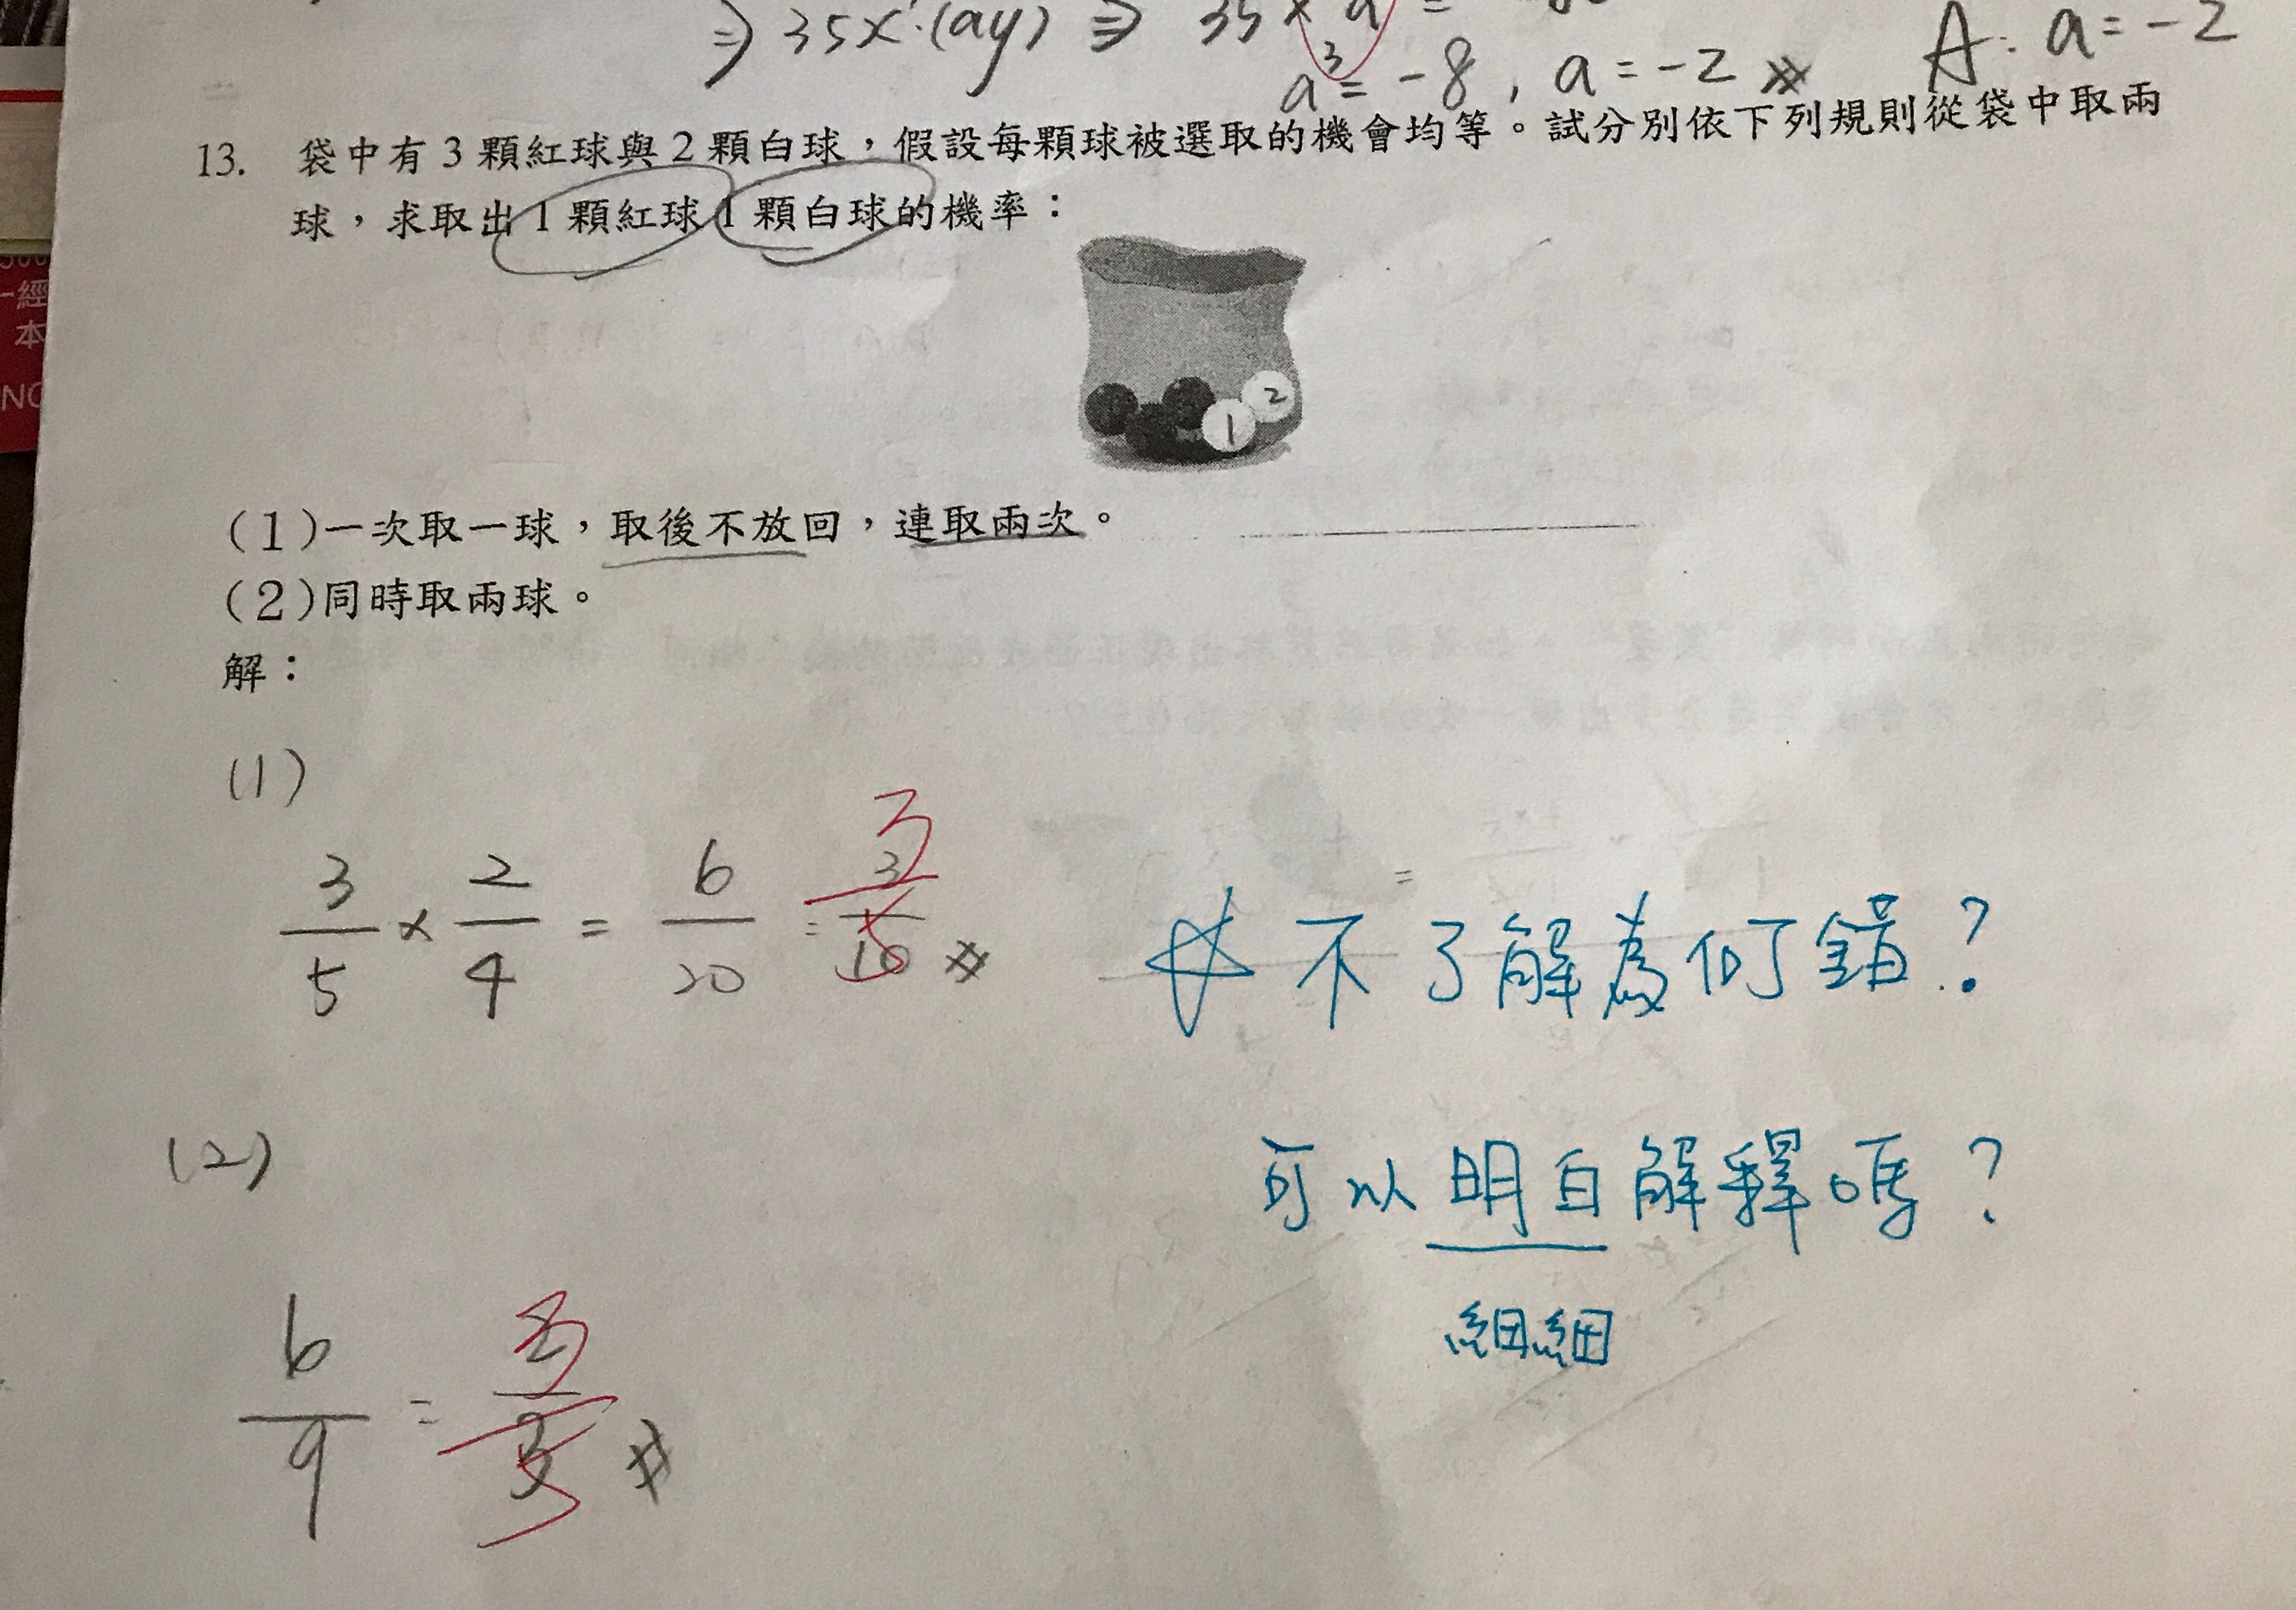 ⇒ 35x·(ay) ⇒ 35 × a =
a³ = -8 , a = -2
A: a = -2
13. 袋中有3顆紅球與2顆白球，假設每顆球被選取的機會均等。試分別依下列規則從袋中取兩
球，求取出1顆紅球1顆白球的機率：
2
1
(1)一次取一球，取後不放回，連取兩次。
(2)同時取兩球。
解：
(1)
3/5 × 2/4 = 6/20 = 3/10
3/5
☆ 不了解為何錯？
(2)
可以明白解釋嗎？
細細
6/9 = 2/3
3/5
經
本
NO